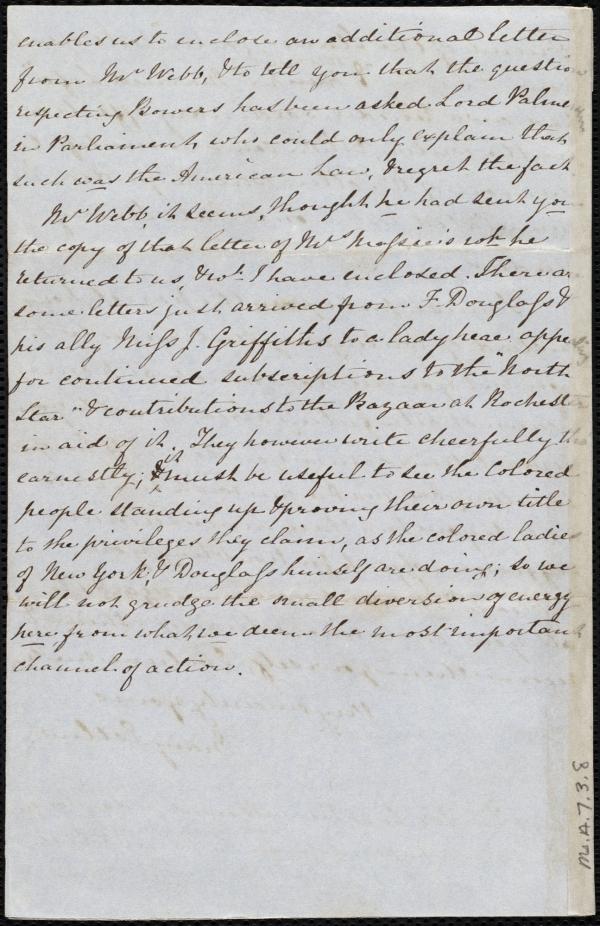 enables us to enclose an additional letter
from Mr Webb, & to tell you that the question
respecting Bowers has been asked Lord Palme
in Parliament, who could only explain that
such was the American Law, & regret the fact
Mr Webb, it seems, thought he had sent you
the copy of that letter of Mrs Massie's wh. he
returned to us, & wh. I have enclosed. There a
some letters just arrived from F. Douglass &
his ally Miss J. Griffiths to a lady here appe
for continued subscriptions to the "North
Star" & contributions to the Bazaar at Rochest
in aid of it. They however write cheerfully th
earnestly; & it must be useful to see the Colored
people standing up & proving their own title
to the privileges they claim, as the colored ladies
of New York, & Douglass himself are doing; so we
will not grudge the small diversion of energy
here from what we deem the most important
channel of action.
Ms.A.7.3,8